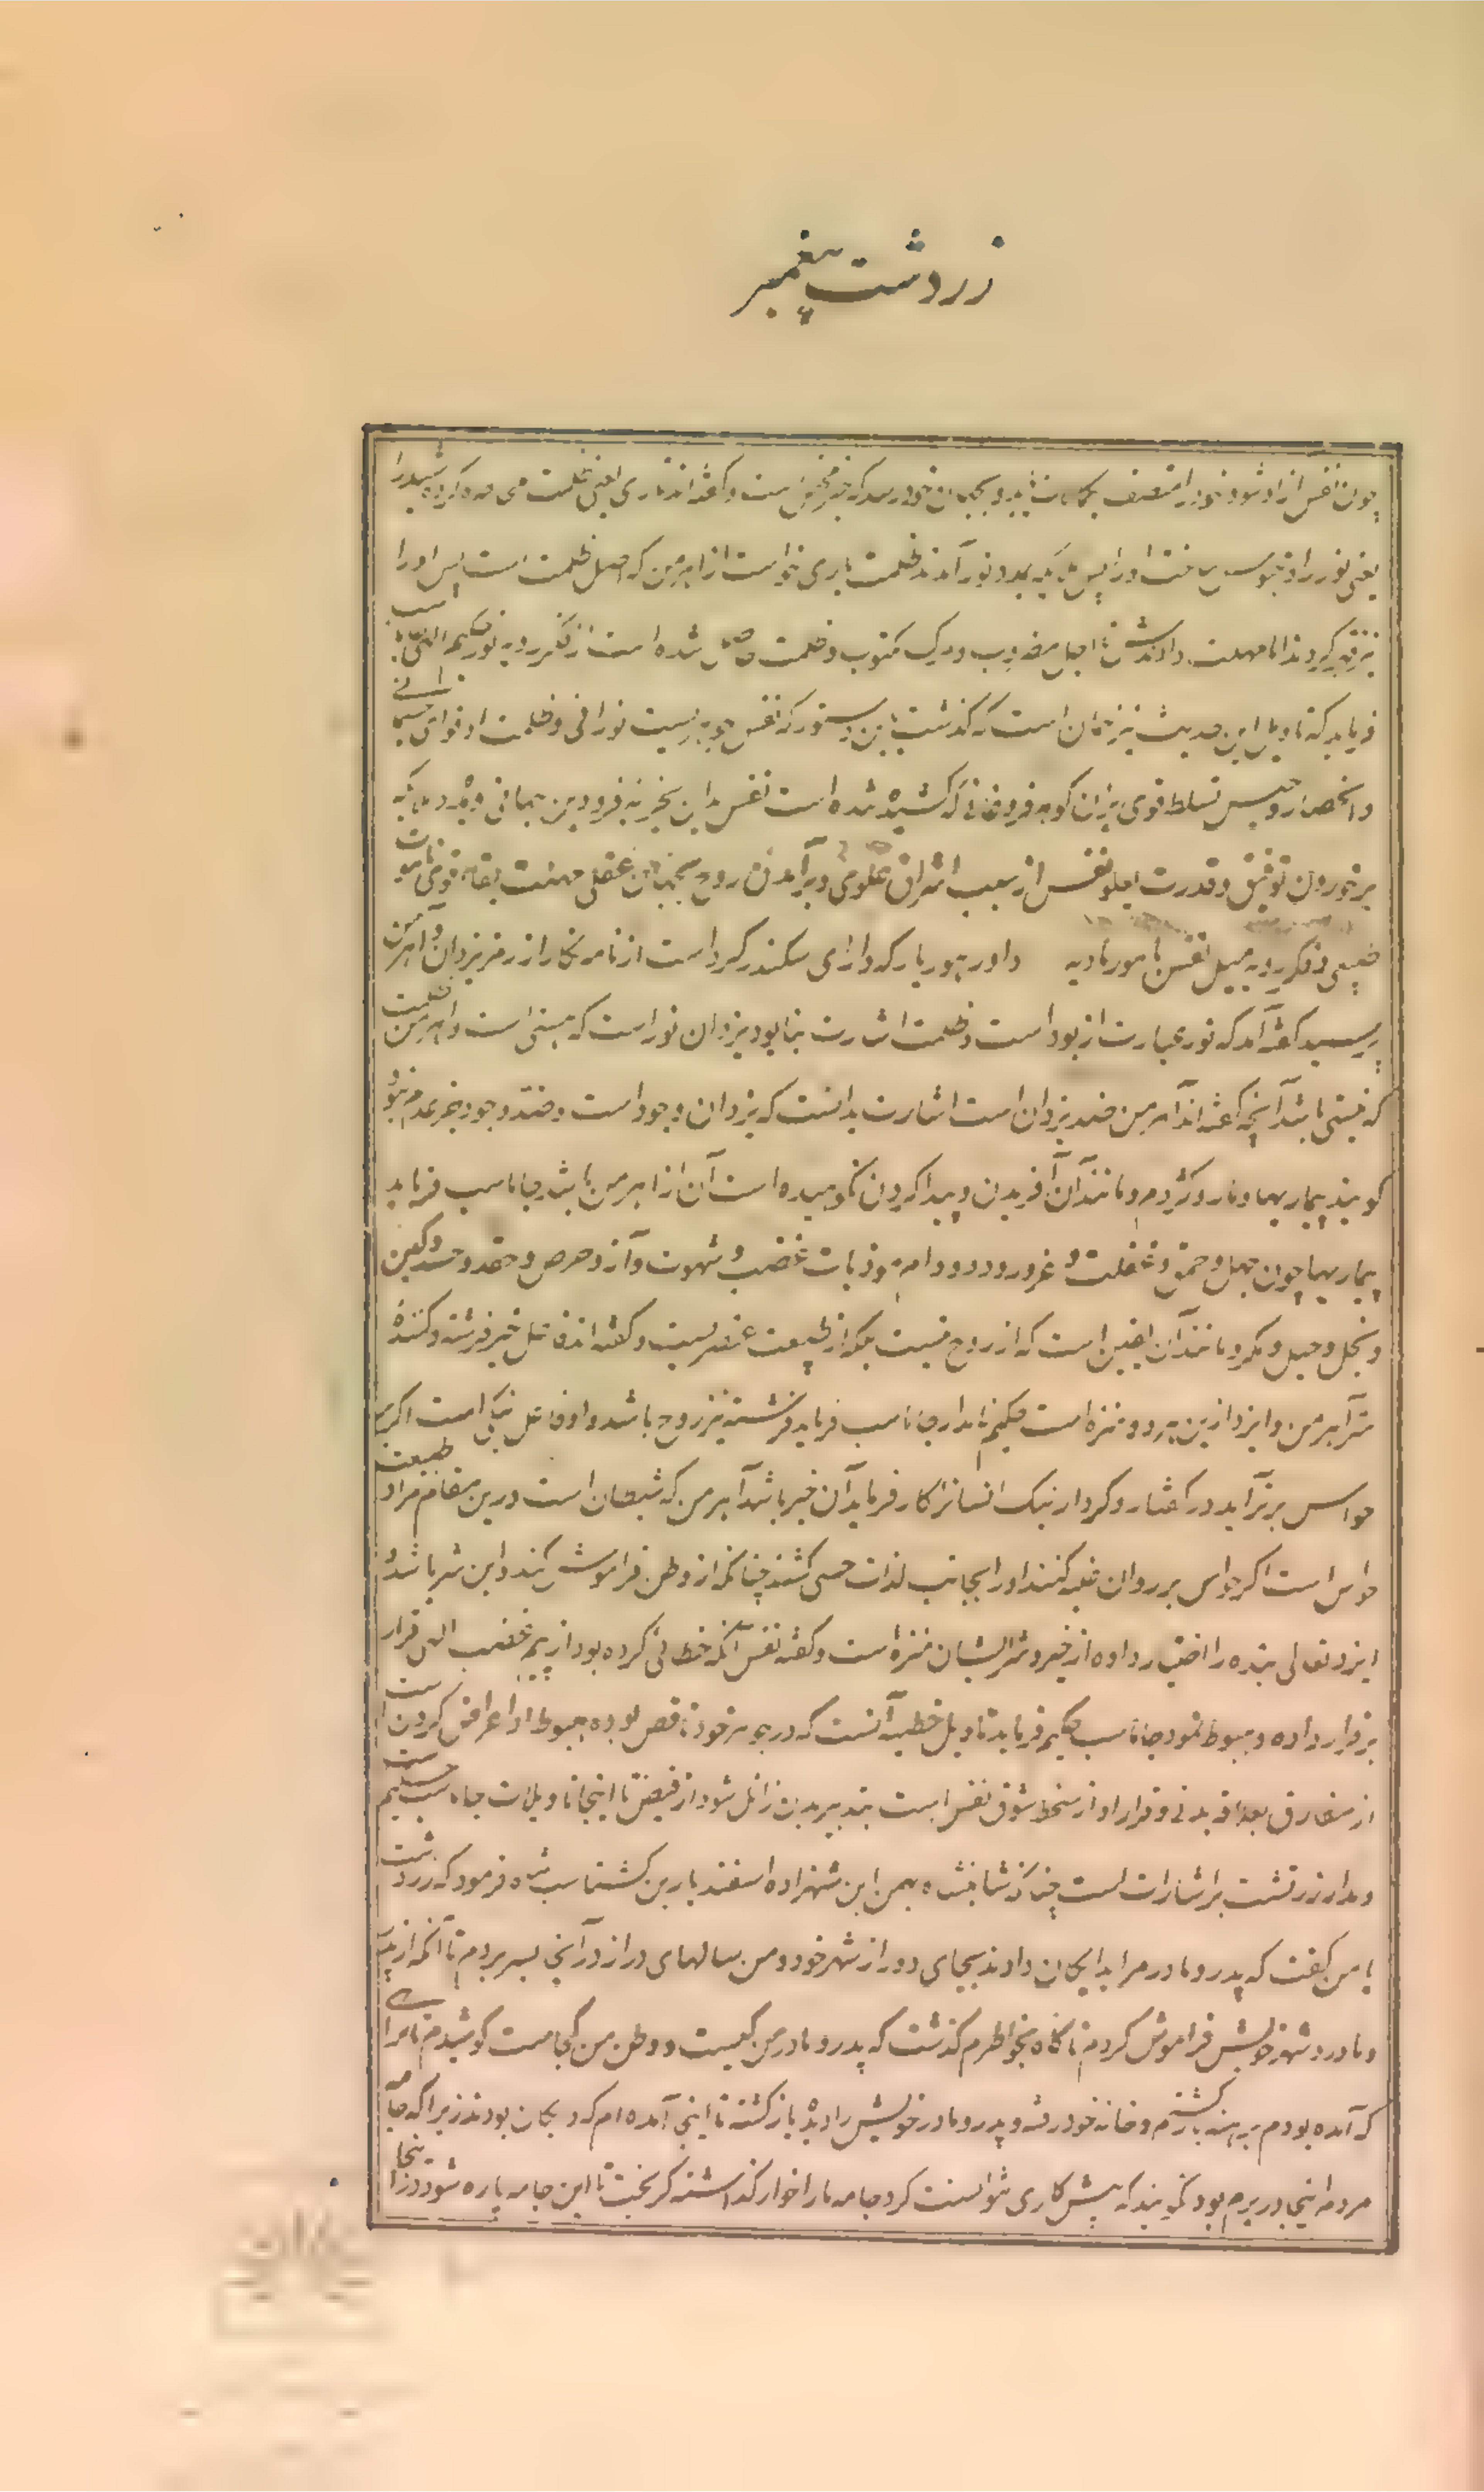 زردشت پیغمبر
چون نفس آزاد شود خود را متصف بکمالات و بجهان خود رسد که خیر محض است و گفته‌اند تاری یعنی ظلمت محاصره کرده شیدرا
یعنی نور را و محبوس ساخت او را پس ملائکه بمدد نور آمدند ظلمت یاری خواست از اهرمن که اصل ظلمت است پس او را
نیز قهر کردند اما مهلت دادندش تا اجل مضروب و مرگ مکتوب و ظلمت شده است از فکر ردیه نور حکیم الهی جاماسب
فرماید که تاویل این حدیث نیز همان است که گذشت باین دستور که نفس جوهریست نورانی و ظلمت او قوای جسمانی
و انحصار و حبس تسلط قوی بر آن گوهر فروغانی که کشیده شده است نفس بدین فرودین جهانی و مدد ملائکه
برخوردن توفیق و قدرت نفس از سبب اشراق علوی و برآمدن روح بجهان عقلی مهلت بقای قوی تا موت
طبیعی و فکر ردیه میل نفس بامور مادیه داور هوریار که دارای سکندر کرد است از نامه نگار از رمز یزدان و اهرمن
پرسید گفته آمد که نور عبارت از بود است و ظلمت اشارت بنابود یزدان نور است که هستی است و اهرمن ظلمت
که نیستی باشد آنچه گفته‌اند اهرمن ضد یزدان است اشارت بدانست که یزدان وجود است و ضد وجود جز عدم نبود
گویند بیماریها و مار و کژدم و مانند آن آفریدن و پیدا کردن نکوهیده است آن از اهرمن باشد جاماسب فرماید
بیماریها چون جهل و حمق و غفلت و غرور و دد و دام موذیات غضب و شهوت و آز و حرص و حقد و حسد و کین
و بخل و حیل و مکر و مانند آن یقین است که از روح نیست بلکه از طبیعت عنصریست و گفته اند فاعل خیر فرشته و کنندۀ
شر اهرمن و ایزد ازین هر دو منزه است حکیم نامدار جاماسب فرماید فرشته نیز روح باشد و او فاعل نیکی است اگر بر
حواس برتر آید در گفتار و کردار نیک انسانرا کار فرماید آن خیر باشد اهرمن که شیطان است درین مقام مراد طبیعت
حواس است اگر حواس بر روان غلبه کنند او را بجانب لذات حسی کشند چنانکه از وطن فراموش کند و این شر باشد و
ایزد تعالی بنده را اختیار داده از خیر و شر ایشان منزه است و گفته نفس آنکه خطائی کرده بود از بیم غضب الهی فرار
برقرار داده و هبوط نمود جاماسب حکیم فرماید تاویل خطیه آنست که در جوهر خود ناقص بوده هبوط او اعراض کردن است
از مفارق بعلاقه بدنی و فرار او از سخط شوق نفس است بتدبیر بدن زائل شود از فیض تا اینجا تاویلات جاماسب حکیم است
و مدار زرتشت بر اشارات است چنانکه شاهنشاه بهمن ابن شهزاده اسفندیار بن گشتاسب شاه فرمود که زردشت
با من گفت که پدر و مادر مرا بدایگان دادند بجای دور از شهر خود و من سالهای دراز در آنجا بسر بردم تا آنکه از پدر
و مادر و شهر خویش فراموش کردم ناگاه بخواطرم گذشت که پدر و مادر من کیست و وطن من کجاست کوشیدم تا براهی
که آمده بودم برهنه بازگشتم و خانه خود رفته و پدر و مادر خویش را دیده بازگشته تا اینجا آمده‌ام که دایگان بودند زیرا که جامه
مردم اینجا در برم بود نگویند که پیشکاری نتوانست کرد جامه ما را خوار گذاشته گریخت تا این جامه پاره شود در اینجا